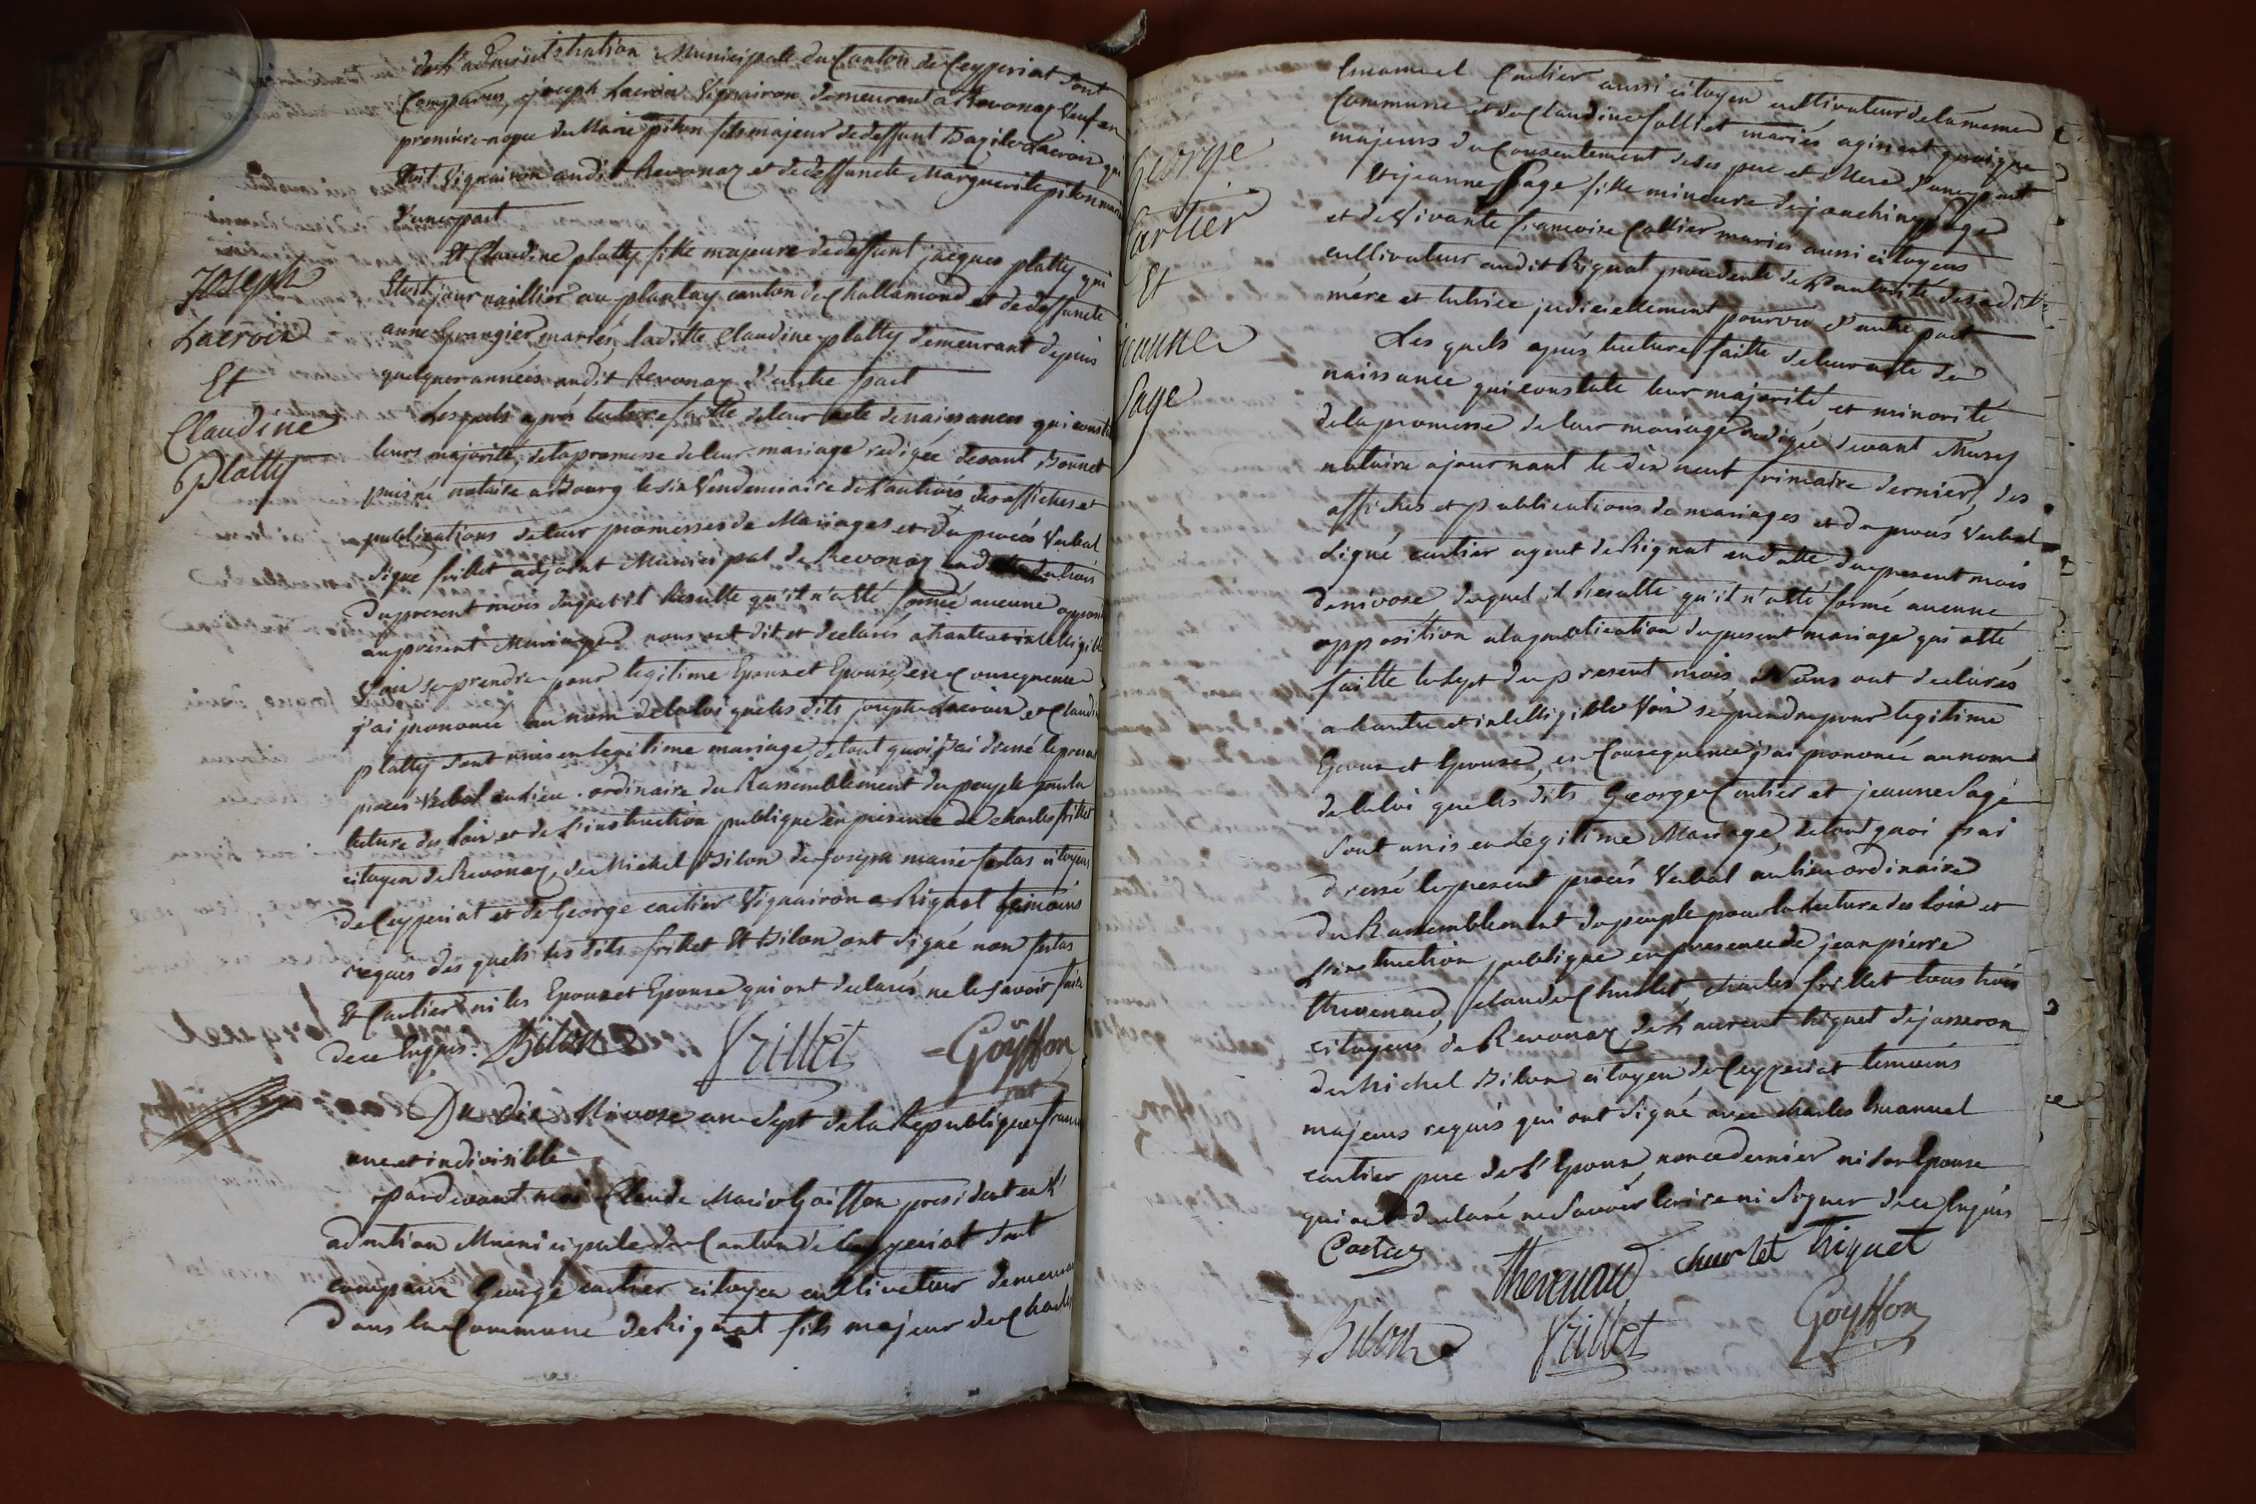 de L'administration Municipale du Canton de Ceyzeriat sont
Comparus joseph Lacroix Vigneiron demeurant a Revonaz Veuf en
premiere nopce de Marie pilon fils majeur de deffunt Bazile Lacroix qui
Etoit Vigneiron audit Revonaz et de deffuncte Marguerite pilon
D'une part
Et Claudine platty fille majeure de deffunt jacques platty qui
Etoit journaillier au plantay canton de Challamond et de deffuncte
anne Grangier mariés, laditte Claudine platty demeurant depuis
quelques années audit Revonaz D'autre part
Joseph
Lacroix
Et
Claudine
Platty
Lesquels après lecture faitte de leur acte de naissances qui
leurs majorité, de la promesse de leur mariage redigée devant Bonnet
puisné notaire a Bourg le six Vendemiaire de des affiches et
publications de leur promesses de Mariages et du procès Verbal
signé frillet adjoint Municipal de Revonaz
du present mois duquel il Resulte qu'il n'a été formée aucune
au present Mariage nous ont dit et declarés a hautte et intelligible
Voix se prendre pour legitime Epoux et Epouse en Consequence
j'ai prononcé au nom de la loi que les dits joseph Lacroix et
platty sont unis en legitime mariage, de tout quoi j'ai dressé le present
proces Verbal au lieu ordinaire du Rassemblement du peuple pour la
lecture des loix et de L'instruction publique en presence de charles frillet
citoyen de Revonaz, de Michel Bilon de joseph marie citoyens
de Ceyzeriat et de George cartier Vigneiron a Rignat temoins
requis des quels les dits frillet Et Bilon ont signé non
Et Cartier ni les Epoux et Epouse qui ont declarés ne le savoir faire
de ce Enquis. Bilon Frillet Goyffon
Du dix Nivose an Sept de la Republique
une et indivisible
pardevant moi Claude Marie Goiffon president en L'
admtion Municipale du Canton de Ceyzeriat sont
comparu George cartier citoyen cultivateur
Dans la Commune de Rignat fils majeur de
Emanuel Cartier aussi citoyen cultivateur de la meme
Commune et de Claudine mariés agissent quoique
majeurs du Consentement de ses pere et Mere D'une part
Et jeanne Page fille mineure de page
et de Vivante françoise Cottier mariés aussi citoyens
cultivateur audit Rignat procedente de L'autorité de sa ditte
mére et tutrice judiciellement pourvu D'autre part
George
Cartier
Et
jeanne
Page
Les quels après lecture faitte de leur acte de
naissance qui constate leur majorité et minorité
de la promesse de leur mariage redigée devant
notaire a journant le dix neuf frimaire dernier, des
affiches et publications de mariages et du procès Verbal
signé cartier agent de Rignat en datte du present mois
de nivose duquel il Resulte qu'il n'a été formé aucune
opposition a la publication du present mariage qui a été
faitte le sept du present mois Nous ont declarés
a hautte et intelligible Voix se prendre pour legitime
Epoux et Epouse, en Consequence j'ai prononcé au nom
de la loi que les dits George Cartier et jeanne Page
sont unis en Legitime Mariage, de tout quoi j'ai
dressé le present procès Verbal au lieu ordinaire
du Rassemblement du peuple pour la lecture des loix et
L'instruction publique en presence de jean pierre
thevenard, claude Churlet, charles frillet tous trois
citoyens de Revonaz, de Laurent triquet de jasseron
de Michel Bilon citoyen de Ceyzeriat temoins
majeurs requis qui ont signé avec charles Emanuel
cartier pere de L'Epoux, non ce dernier ni son Epouse
qui ont declaré ne savoir Ecrire ni signer de ce Enquis
Thevenard Churlet triquet
Bilon Frillet Goyffon